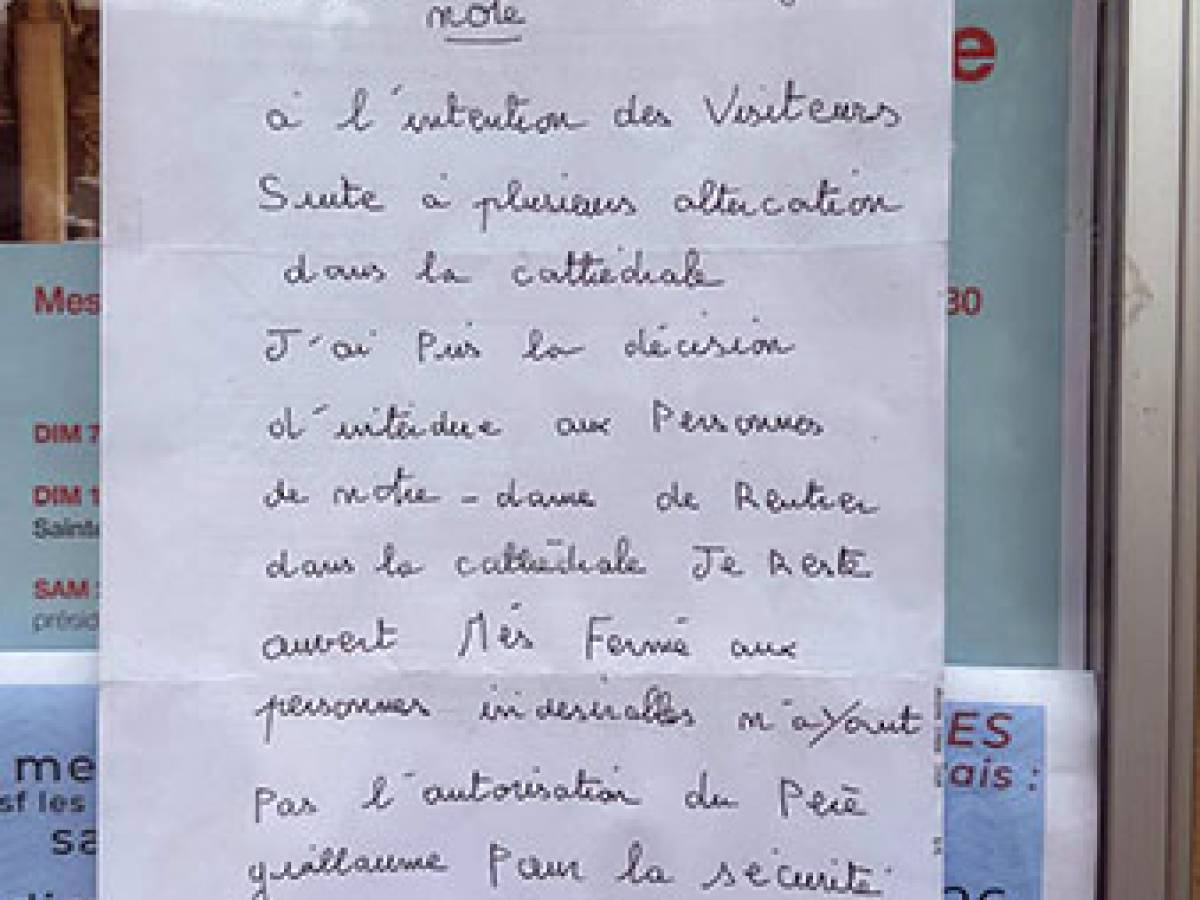 note
à l'intention des Visiteurs
Suite à plusieurs altercation
dans la cathédrale
J'ai Pris la décision
d'interdire aux Personnes
de notre-dame de Rentrer
dans la cathédrale Je Reste
auvert Més Fermé aux
personnes indesirables n'aYant
Pas l'autorisation du Père
guillaume Pour la sécurité
e
Mes
30
DIM 7
DIM 1
Sainte
SAM
présid
me
sf les
sa
ES
ais :